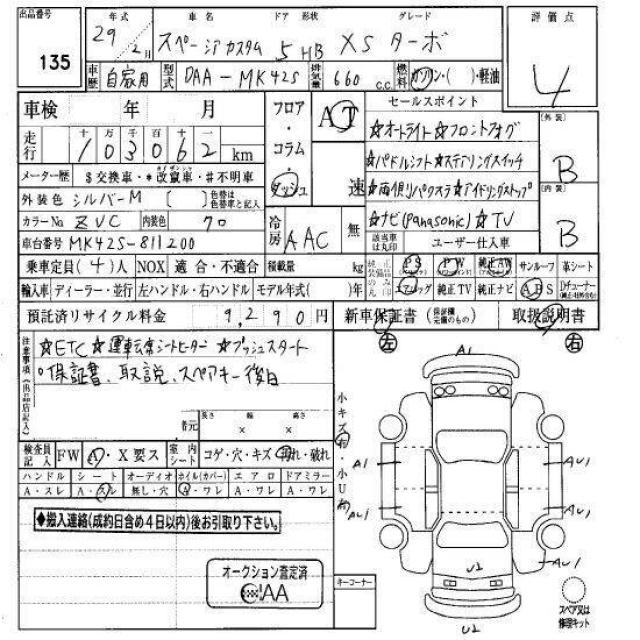 出品番号 135
年式 29年 2月 車名 スペーシアカスタム ドア形状 5HB グレード XSターボ
評価点 4
車歴 自家用 型式 DAA-MK42S 排気量 660 c.c. 燃料 ガソリン・( )・軽油
車検 年 月
走行 十万千百十一 103062 km
フロア・コラム・ダッシュ AT 速
セールスポイント
☆オートライト☆フロントフォグ
☆パドルシフト☆ステアリングスイッチ
☆両側パワスラ☆アイドリングストップ
☆ナビ(Panasonic)☆TV
外装 B
内装 B
メーター歴 $交換車・*改竄車・#不明車
外装色 シルバーM [ ] 色替は色替車と記入
カラーNo ZVC 内装色 70
車台番号 MK42S-811200
冷房 AAC 無
該当車は丸印 ユーザー仕入車
乗車定員(4)人 NOX 適合・不適合 積載量 kg
純正装備品のみ丸印 PS PW 純正AW サンルーフ 革シート
輸入車 ディーラー・並行 左ハンドル・右ハンドル モデル年式( )年
エアバッグ 純正TV 純正ナビ ABS Dチューナー
預託済リサイクル料金 9,290円 新車保証書 取扱説明書
注意事項(出品店記入)
☆ETC☆運転席シートヒーター☆プッシュスタート
○保証書、取説、スペアキー後日
者元 長さ 幅 高さ
× ×
検査員記入 FW A・X要ス 室内シート コゲ・穴・キズ・汚れ・破れ
ハンドル シート オーディオ ホイル(カバー) エアロ ドアミラー
A・スレ A・スレ 無し・穴 A・ワレ A・ワレ A・ワレ
◆搬入連絡(成約日含め4日以内)後お引取り下さい。
オークション査定済
AA
小キズ有・小U有
キーコーナー
左 右
A1
A1 AU1
AU1 AU1
U1 AU1
U2
スペア又は修理キット